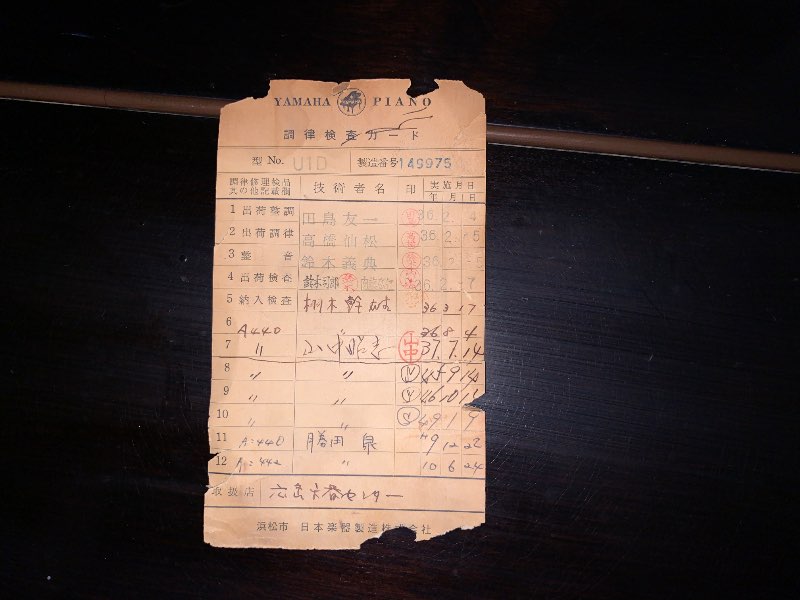 YAMAHA PIANO
調律検査カード
型 No. U1D 製造番号 149975
調律修理検品 其の他記載欄 技術者名 印 実施月日 年 月 日
1 出荷整調 田島友一 36. 2. 4
2 出荷調律 高橋仙松 36. 2. 5
3 整音 鈴木義典 36. 2. 5
4 出荷検査 36. 2. 7
5 納入検査 幹 36 3 17
6 A440 〃 36 8 4
7 〃 山中 37. 7. 14
8 〃 〃 9 14
9 〃 〃 46 10
10 〃 〃 49 1 9
11 A=440 勝田 H9 12 22
12 A=442 〃 10 6 24
取扱店 広島センター
浜松市 日本楽器製造株式会社